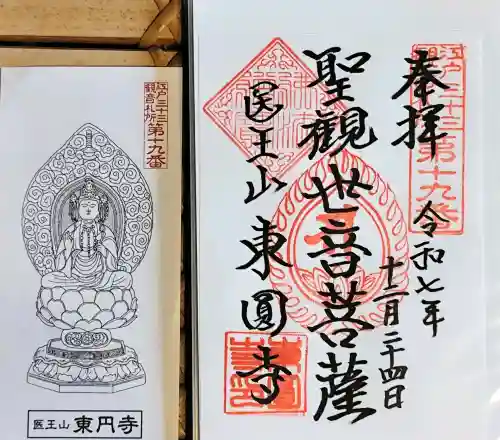 江戸三十三
観音札所
第十九番
医王山 東円寺
奉拝
江戸三十三
観音札所
第十九番
令和七年
十二月二十四日
聖観世音菩薩
医王山 東圓寺